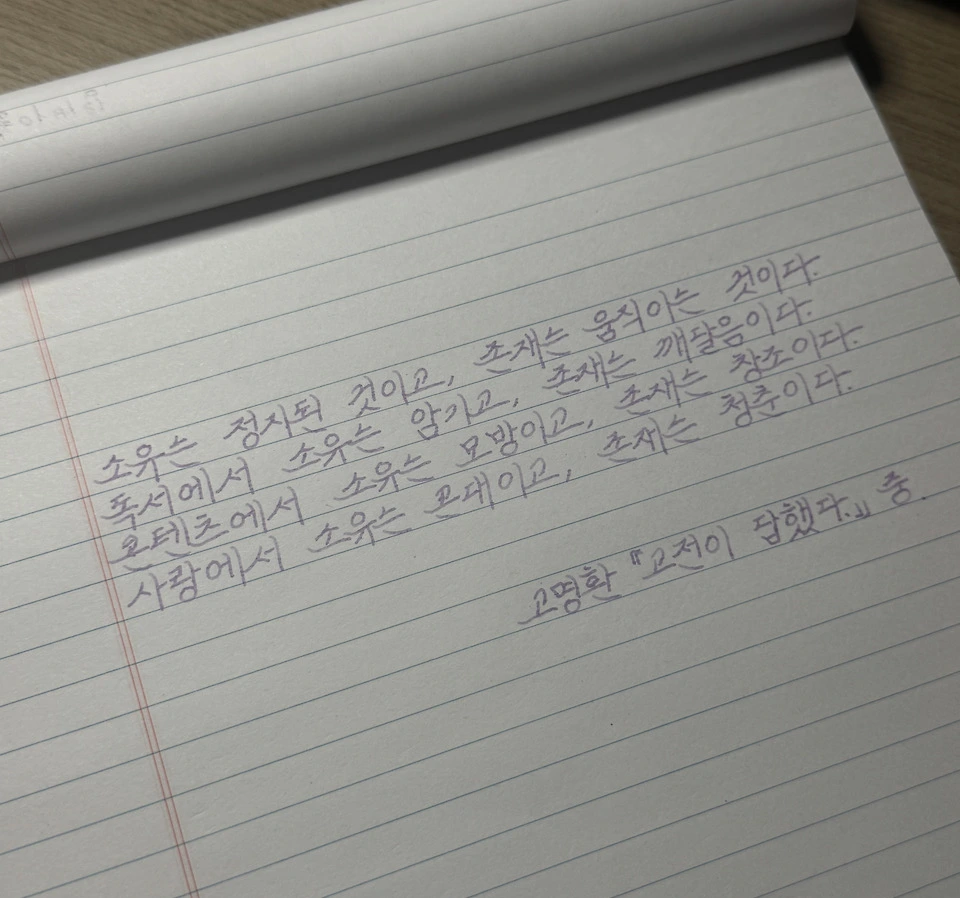 소유는 정지된 것이고, 존재는 움직이는 것이다.
독서에서 소유는 암기고, 존재는 깨달음이다.
콘텐츠에서 소유는 모방이고, 존재는 창조이다.
사랑에서 소유는 꼰대이고, 존재는 청춘이다.
고명환 『고전이 답했다.』 중.